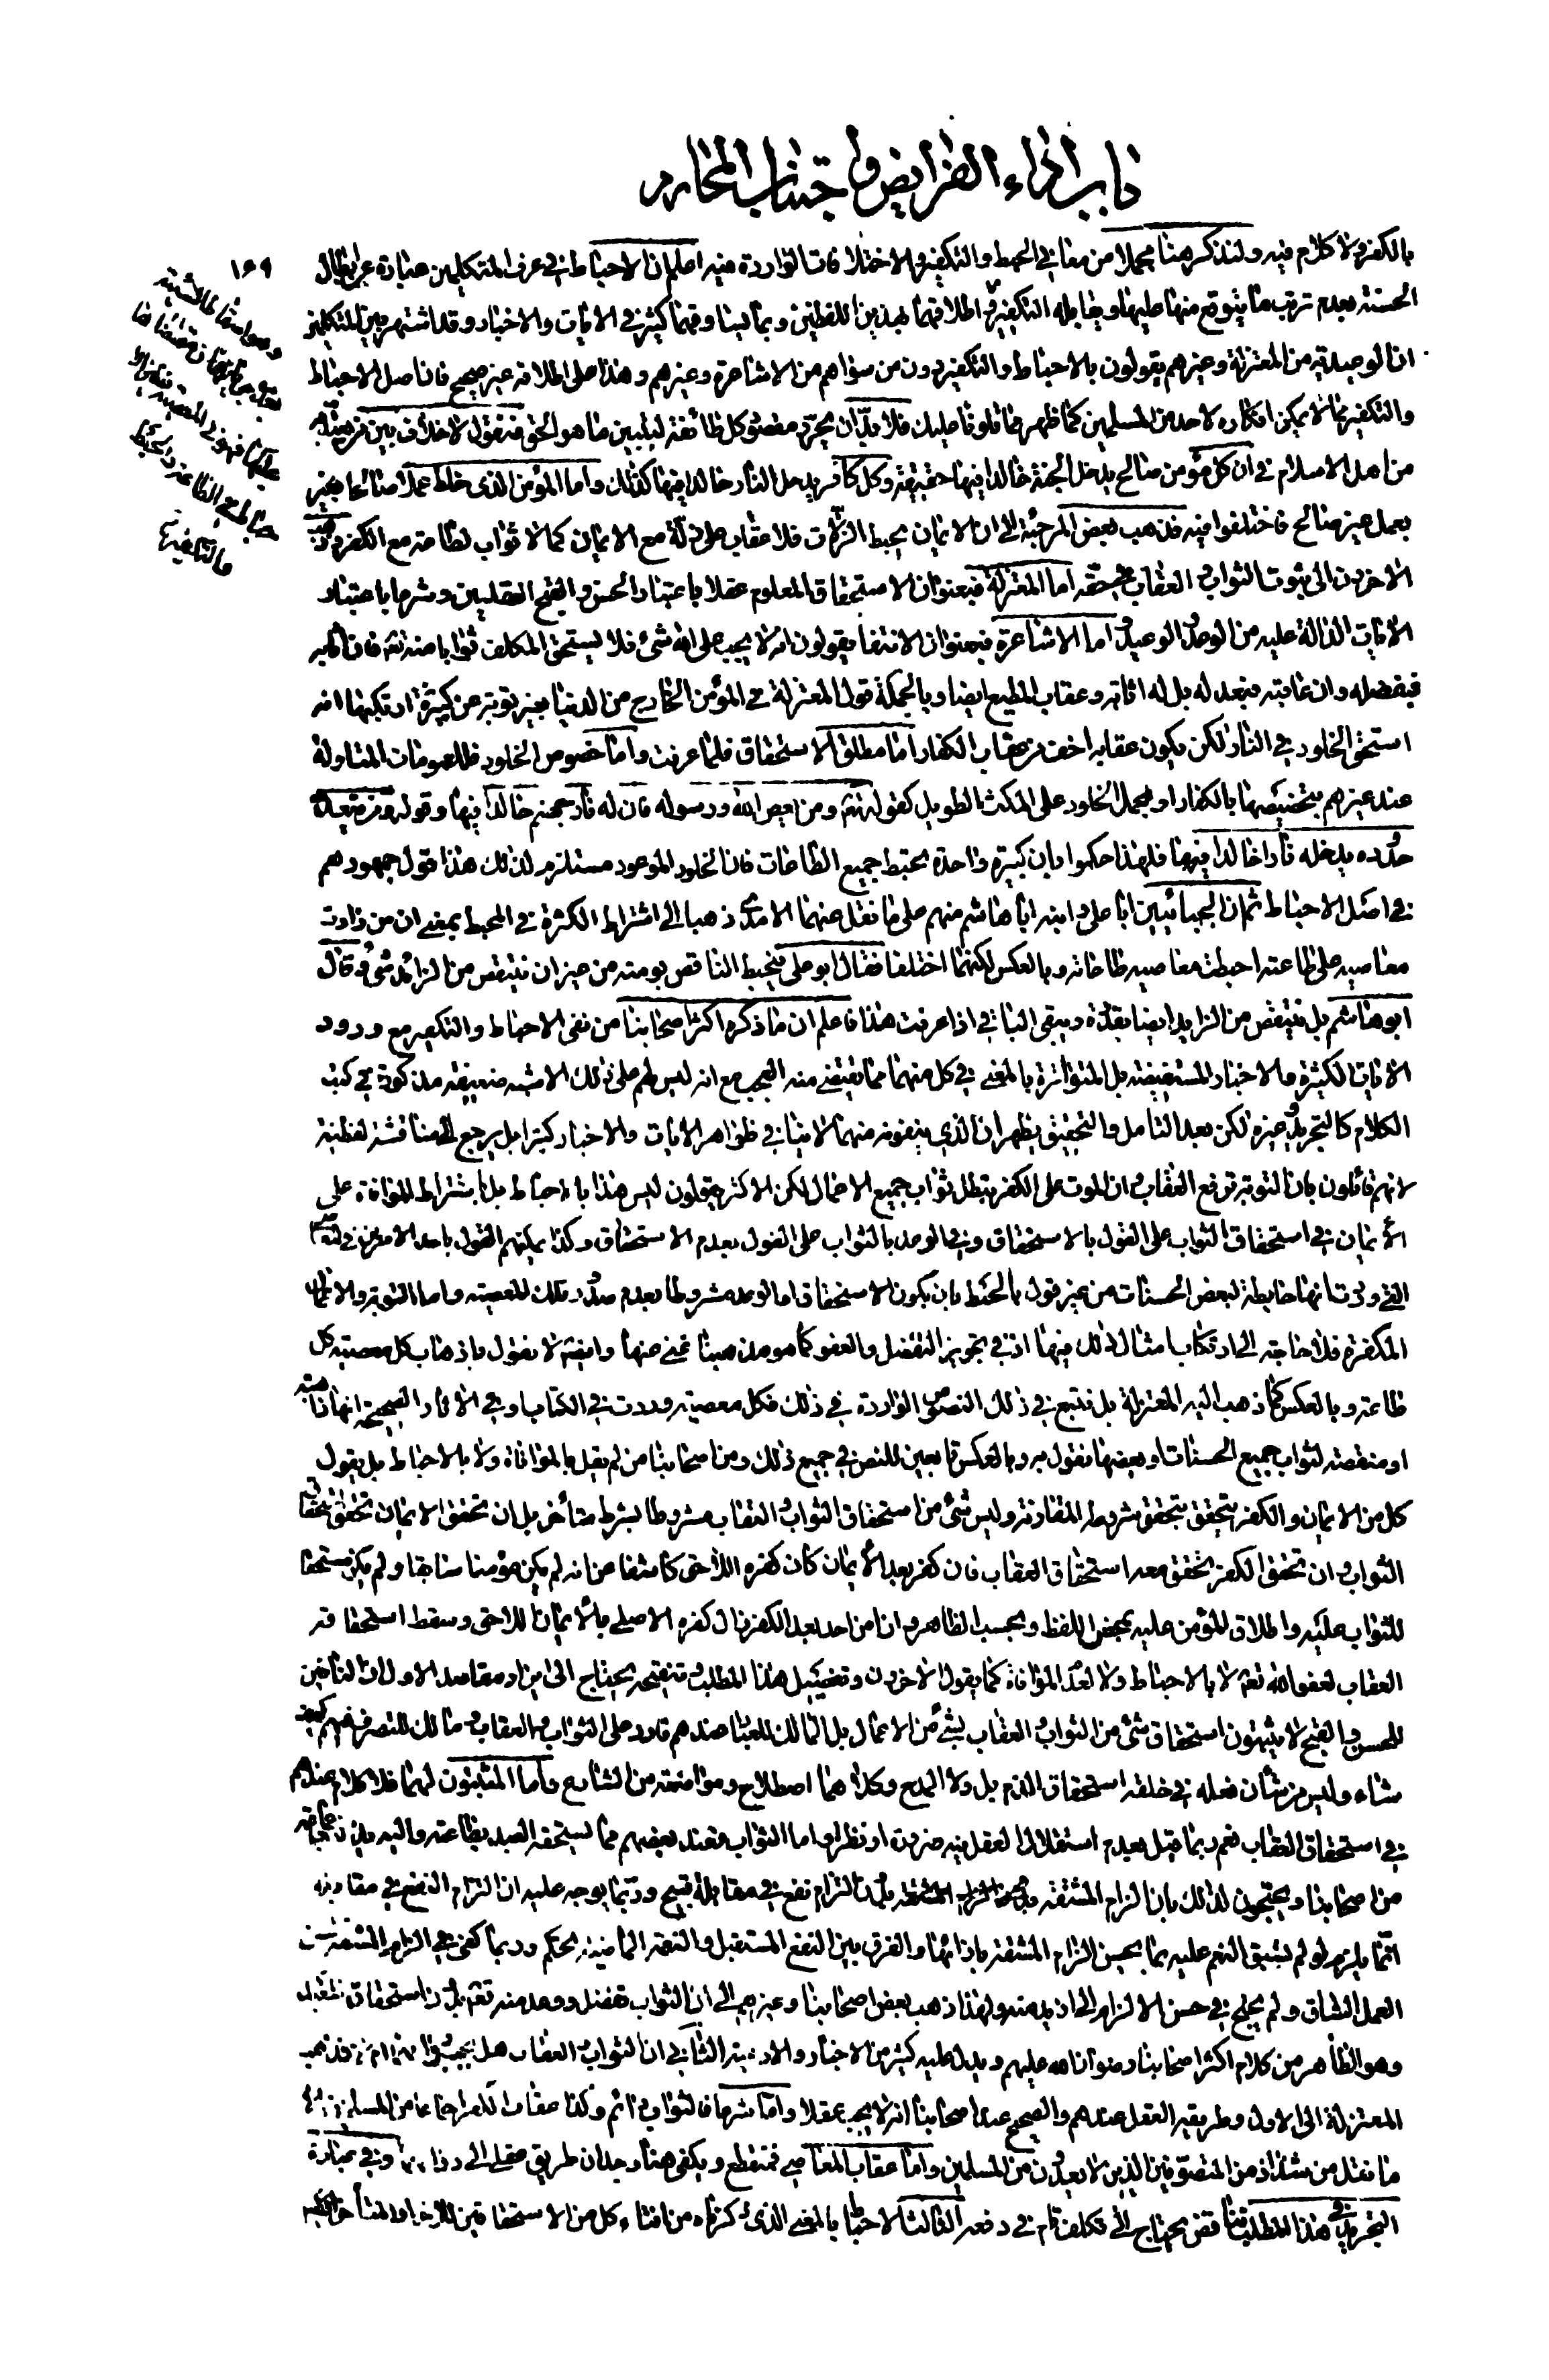 باب اداء الفرايض و اجتناب المحارم
۱۶۹
بالكفر ولا كلام فيه ولنذكر هنا مجملا من معانى الحبط والتكفير والاختلافات الواردة فيه اعلم ان الاحباط فى عرف المتكلمين عبارة عن ابطال
الحسنة بعدم ترتب ما يتوقع منها عليها ويقابله التكفير و اطلاقهما بهذين اللفظين وبما يساوقهما كثير فى الايات والاخبار وقد اشتهر بين المتكلمين
ان الوعيدية من المعتزلة وغيرهم يقولون بالاحباط والتكفير دون من سواهم من الاشاعرة وغيرهم وهذا على اطلاقه غير صحيح فان اصل الاحباط
والتكفير مما لا يمكن انكاره لاحد من المسلمين كما ظهر مما تلونا عليك فلا بد ان يحرر مقصود كل طائفة ليتبين ما هو الحق فنقول لا خلاف بين
من اهل الاسلام فى ان كل مؤمن صالح يدخل الجنة خالدا فيها حقيقة وكل كافر يدخل النار خالدا فيها كذلك واما المؤمن الذى خلط عملا صالحا
بعمل غير صالح فاختلفوا فيه فذهب بعض المرجئة الى ان الايمان يحبط الزلات فلا عقاب على زلة مع الايمان كما لا ثواب لطاعة مع الكفر وذهب
الاخرون الى ثبوت الثواب و العقاب فى حقه اما المعتزلة فبعنوان الاستحقاق المعلوم عقلا باعتبار الحسن و القبح العقليين وشرعا باعتبار
الايات الدالة عليه من الوعد و الوعيد و اما الاشاعرة فبعنوان الانتفا يقولون انه لا يجب على الله شئ فلا يستحق المكلف ثوابا منه تعالى فان اثابه
فبفضله وان عاقبه فبعدله بل له اثابة وعقاب المطيع ايضا وبالجملة قول المعتزلة فى المؤمن الخارج من الدنيا بغير توبة عن كبيرة ارتكبها انه
استحق الخلود فى النار لكن يكون عقابه اخف من عقاب الكفار اما مطلق الاستحقاق فلما عرفت واما خصوص الخلود فللعمومات المتناولة
عند غيرهم بتخصيصها بالكفار او بحمل الخلود على المكث الطويل كقوله تعالى ومن يعص الله ورسوله فان له نار جهنم خالدا فيها وقوله ومن يتعد
حدوده يدخله نارا خالدا فيها فلهذا حكموا بان كبيرة واحدة تحبط جميع الطاعات فان الخلود الموعود مستلزم لذلك هذا قول جمهورهم
فى اصل الاحباط ثم ان الجبائيين ابا على و ابنه ابا هاشم منهم على ما نقل عنهما الامدى ذهبا الى اشتراط الكثرة فى المحبط بمعنى ان من زادت
معاصيه على طاعته احبطت معاصيه طاعاته وبالعكس لكنهما اختلفا فقال ابو على ينحبط الناقص برمته من غير ان ينتقص من الزائد شئ و قال
ابو هاشم بل ينتقص من الزايد ايضا بقدره ويبقى الباقى اذا عرفت هذا فاعلم ان ما ذكره اكثر اصحابنا من نفى الاحباط والتكفير مع ورود
الايات الكثيرة والاخبار المستفيضة بل المتواترة بالمعنى فى كل منهما مما يقضى منه العجب مع انه ليس لهم على ذلك الا شبه ضعيفة مذكورة فى كتب
الكلام كالتجريد و غيره لكن بعد التامل والتحقيق يظهر ان الذى ينفونه منهما لا ينافى ظواهر الايات والاخبار كثيرا بل يرجع الى مناقشة لفظية
لانهم قائلون بان التوبة ترفع العقاب و ان الموت على الكفر تبطل ثواب جميع الاعمال لكن الاكثر يقولون ليس هذا بالاحباط بل باشتراط الموافاة على
الايمان فى استحقاق الثواب على القول بالاستحقاق وفى الوعد بالثواب على القول بعدم الاستحقاق وكذا يمكنهم القول باحد الامرين فى المعاصى
التى وردت انها حابطة لبعض الحسنات من غير قول بالحبط بان يكون الاستحقاق او الوعد مشروطا بعدم صدور تلك المعصية واما التوبة والاعمال
المكفرة فلا حاجة الى ارتكاب امثال ذلك فيها اذ فى تجويز التفضل والعفو كما هو مذهبنا غنى عنها وايضا لا نقول باذهاب كل معصية كل
طاعة وبالعكس كما ذهب اليه المعتزلة بل نتبع فى ذلك النصوص الواردة فى ذلك فكل معصية وردت فى الكتاب او فى الاثار الصحيحة انها ذاهبة
او منقصة لثواب جميع الحسنات او بعضها نقول به وبالعكس تابعين للنص فى جميع ذلك ومن اصحابنا من لم يقل بالموافاة ولا بالاحباط بل يقول
كل من الايمان والكفر يتحقق بتحقق شروطه المقارنة وليس شئ من استحقاق الثواب و العقاب مشروطا بشرط متأخر بل ان تحقق الايمان تحقق معه استحقاق
الثواب و ان تحقق الكفر تحقق معه استحقاق العقاب فان كفر بعد الايمان كان كفره اللاحق كاشفا عن انه لم يكن مؤمنا سابقا ولم يكن مستحقا
للثواب عليه واطلاق المؤمن عليه بمحض اللفظ وبحسب الظاهر و ان امن احد بعد الكفر زال كفره الاصلى بالايمان اللاحق وسقط استحقاقه
العقاب لعفو الله تعالى لا بالاحباط ولا لعدم الموافاة كما يقول الاخرون وتفصيل هذا المطلب و تنقيحه يحتاج الى ايراد مقاصد الاول ان النافين
للحسن و القبح لا يثبتون استحقاق شئ من الثواب و العقاب بشئ من الاعمال بل المالك للعباد عندهم قادر على الثواب و العقاب و مالك للتصرف فيهم كيف
شاء وليس من شأن فعله فى خلقه استحقاق الذم بل ولا المدح وكلاهما اصطلاح ومواضعة من الشارع واما المثبتون لهما فلا كلام عندهم
فى استحقاق العقاب نعم ربما قيل بعدم استقلال العقل فيه ضرورة او نظرا و اما الثواب فعند بعضهم مما يستحقه العبد بطاعته واليه يذهب جماعة
من اصحابنا ويحتجون لذلك بان الزام المشقة بدون التزام نفع فى مقابله قبيح وربما يوجه عليه ان التزام النفع فى مقابله
انما يلزم لو لم يسبق النعم عليه بما يحسن الزام المشقة بازائها والفرق بين النفع المستقبل والنعمة الماضية تحكم وربما كفى فى الزام المشقة حسن
العمل الشاق ولم يحتج فى حسن الالزام الى ازيد منه ولهذا ذهب بعض اصحابنا وغيرهم الى ان الثواب تفضل ووعد منه تعالى بدون استحقاق للعبد
وهو الظاهر من كلام اكثر اصحابنا رضوان الله عليهم ويدل عليه كثير من الاخبار والادعية الثانى ان الثواب و العقاب هل يجب دوامهما ام لا فذهب
المعتزلة الى الاول وطريقه العقل عندهم والصحيح عند اصحابنا انه لا يجب عقلا واما شرعا فالثواب دائم وكذا عقاب الكفر اجماعا من المسلمين الا
ما نقل من شذاذ من المتصوفين الذين لا يعدون من المسلمين واما عقاب المعاصى فمنقطع ويكفى هنا وجدان طريق عقلى الى وفى عبارة
التجريد فى هذا المطلب تناقض يحتاج الى تكلف تام فى دفعه الثالث الاحباط بالمعنى الذى ذكرناه من افناء كل من الاستحقاقين للاخر او المتأخر للمتقدم